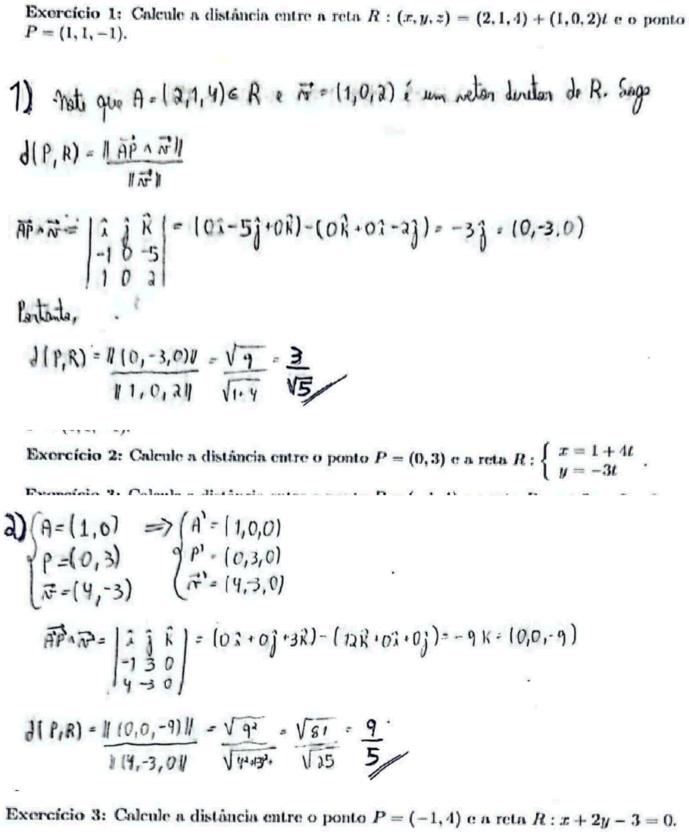 Exercício 1: Calcule a distância entre a reta R : (x, y, z) = (2, 1, 4) + (1, 0, 2)t e o ponto
P = (1, 1, −1).
1) Note que A = (2,1,4) ∈ R e v⃗ = (1,0,2) é um vetor diretor de R. Logo
d(P, R) = ‖AP⃗ ∧ v⃗‖ / ‖v⃗‖
AP⃗ ∧ v⃗ = | î ĵ k̂ | = (0î - 5ĵ + 0k̂) - (0k̂ + 0î - 2ĵ) = -3ĵ = (0,-3,0)
-1 0 -5
1 0 2
Portanto,
d(P,R) = ‖(0,-3,0)‖ / ‖1,0,2‖ = √9 / √1+4 = 3/√5
Exercício 2: Calcule a distância entre o ponto P = (0, 3) e a reta R : { x = 1 + 4t
y = −3t .
2) { A = (1,0) ⟹ { A' = (1,0,0)
P = (0,3) P' = (0,3,0)
v⃗ = (4,-3) v⃗' = (4,-3,0)
AP⃗ ∧ v⃗ = | î ĵ k̂ | = (0î + 0ĵ + 3k̂) - (12k̂ + 0î + 0ĵ) = -9k = (0,0,-9)
-1 3 0
4 -3 0
d(P,R) = ‖(0,0,-9)‖ / ‖(4,-3,0)‖ = √9² / √4²+3² = √81 / √25 = 9/5
Exercício 3: Calcule a distância entre o ponto P = (−1, 4) e a reta R : x + 2y − 3 = 0.